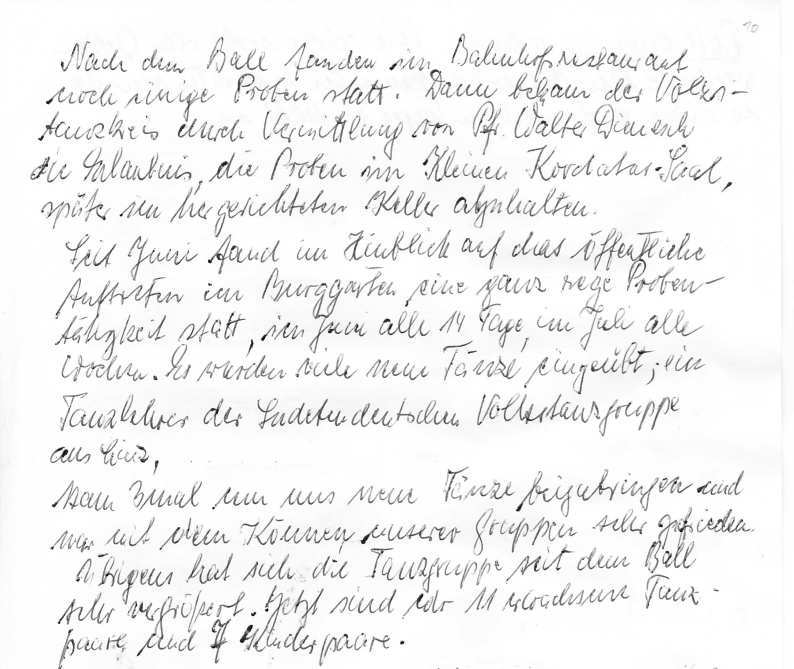 10
Nach dem Ball fanden im Bahnhofsrestaurant
noch einige Proben statt. Dann bekam der Volks-
tanzkreis durch Vermittlung von Pfr. Walter Dienesch
die Erlaubnis, die Proben im Kleinen Kordatus-Saal,
später im hergerichteten Keller abzuhalten.
Seit Juni fand im Hinblick auf das öffentliche
Auftreten im Burggarten eine ganz rege Proben-
tätigkeit statt, im Juni alle 14 Tage, im Juli alle
Wochen. Es wurden viele neue Tänze eingeübt, ein
Tanzlehrer der Sudetendeutschen Volkstanzgruppe
aus Linz,
kam 3mal um uns neue Tänze beizubringen und
war mit dem Können unserer Gruppen sehr zufrieden.
Übrigens hat sich die Tanzgruppe seit dem Ball
sehr vergrößert. Jetzt sind wir 11 erwachsene Tanz-
paare und 7 Kinderpaare.